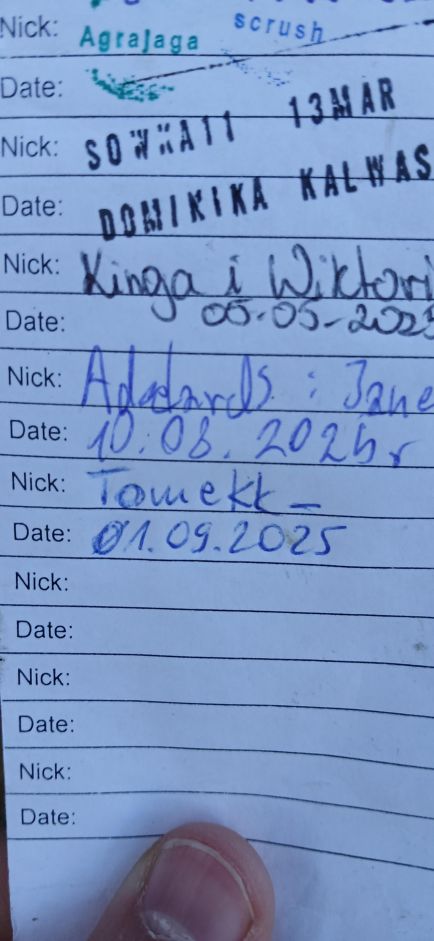 Nick: Agrajaga scrush
Date:
Nick: SOWKA11 13MAR
Date: DOMINIKA KALWAS
Nick: Kinga i Wiktori
Date: 05-05-2025
Nick: : Jane
Date: 10.08.2025r
Nick: Tomekk_
Date: 01.09.2025
Nick:
Date:
Nick:
Date:
Nick:
Date: